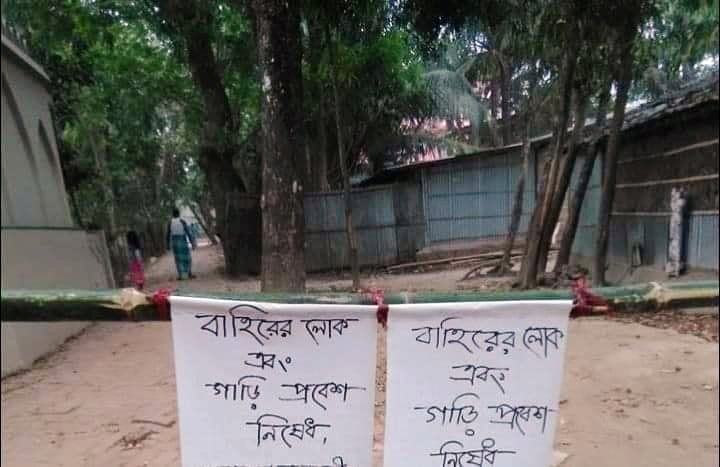 বাহিরের লোক
এবং
গাড়ি প্রবেশ
নিষেধ,
বাহিরের লোক
এবং
গাড়ি প্রবেশ
নিষেধ